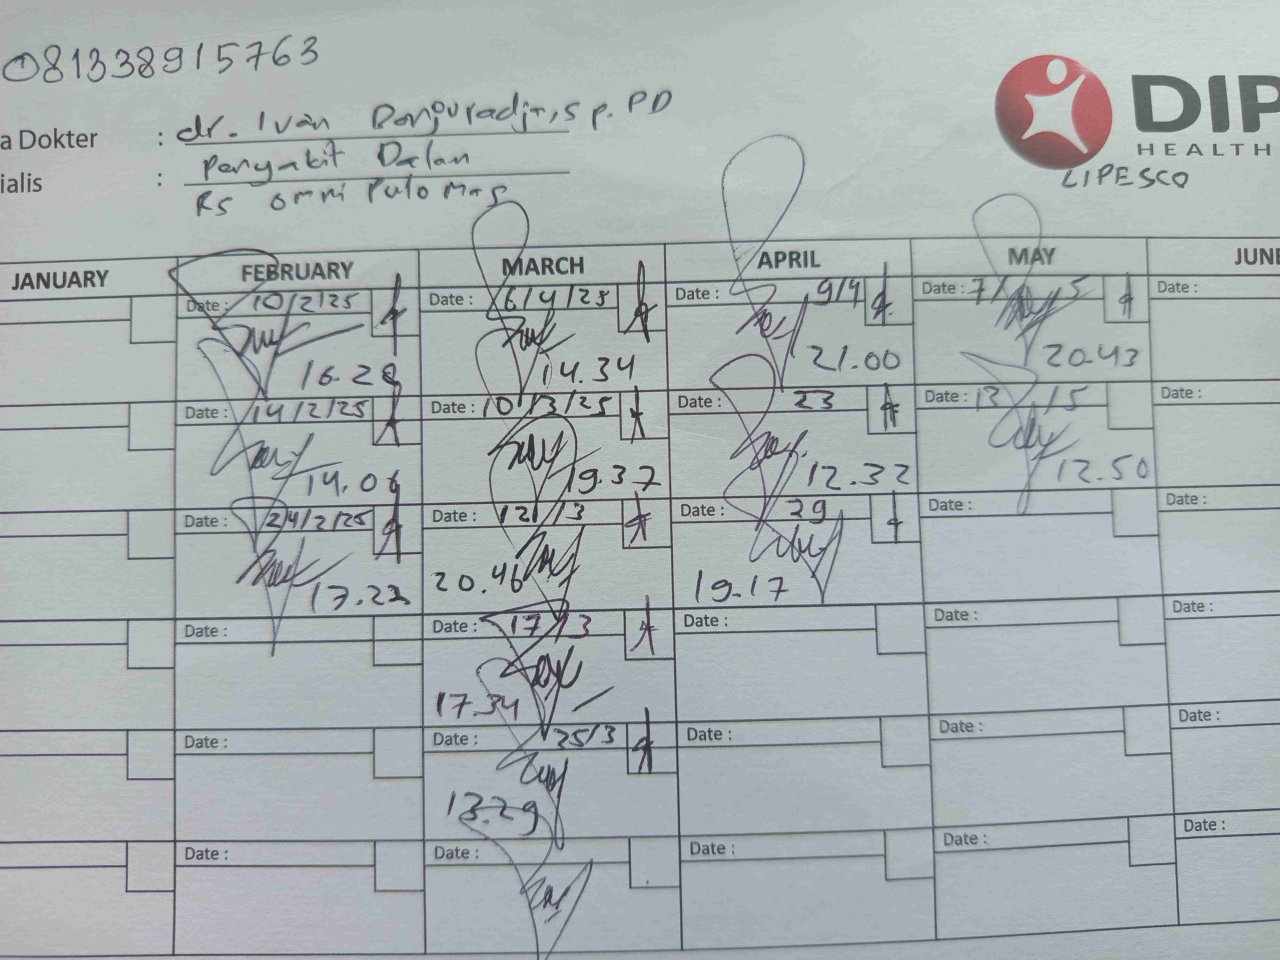 081338915763
a Dokter : dr. Ivan Danjouradja, Sp. PD
ialis : Penyakit Dalam
RS Omni Pulo Mas
DIP
HEALTH
LIPESCO
JANUARY FEBRUARY MARCH APRIL MAY JUNE
Date : 10/2/25 Date : 6/4/25 Date : 9/4 Date : 7/5 Date :
16.28 14.34 21.00 20.43
Date : 14/2/25 Date : 10/3/25 Date : 23 Date : 13/5 Date :
14.06 19.37 12.32 12.50
Date : 24/2/25 Date : 12/3 Date : 29 Date : Date :
17.22 20.46 19.17
Date : Date : 17/3 Date : Date : Date :
17.34
Date : Date : 25/3 Date : Date : Date :
13.29
Date : Date : Date : Date : Date :